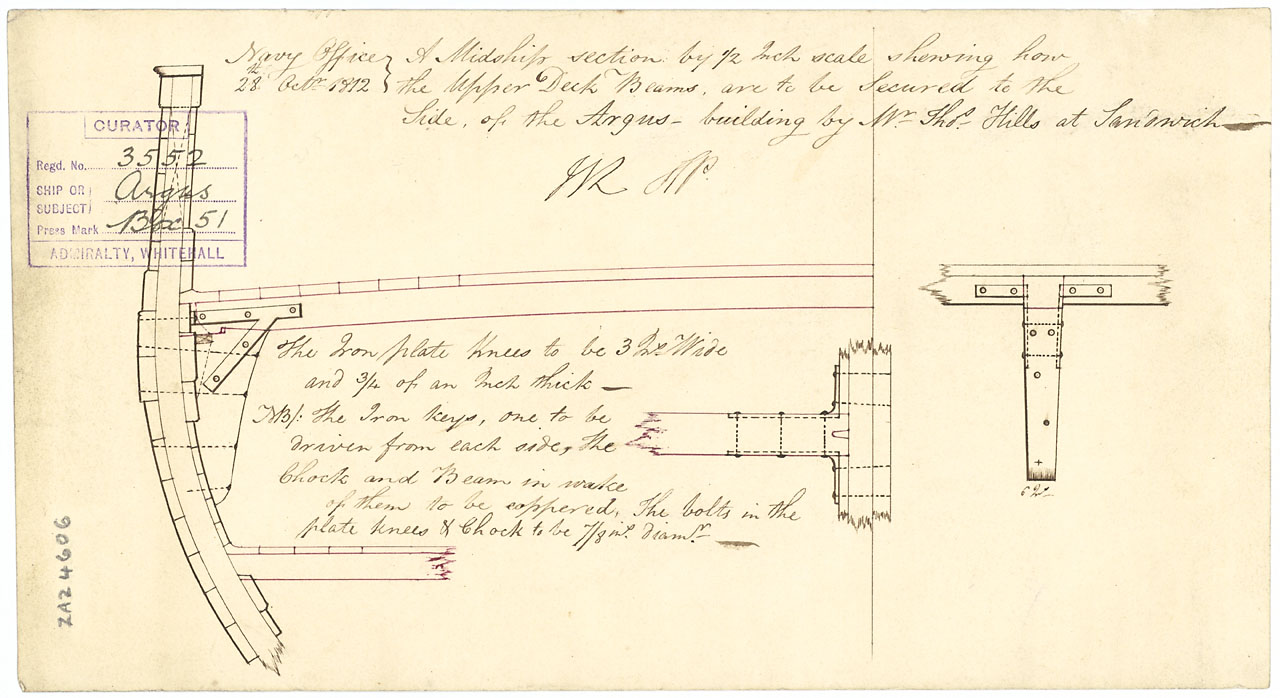 Navy Office } A Midship section by 1/2 Inch scale shewing how
28th Octr 1812 } the Upper Deck Beams, are to be Secured to the
Side, of the Argus - building by Mr Thos. Hills at Sandwich
CURATOR
Regd. No. 3552
SHIP OR SUBJECT } Argus
Press Mark Box 51
ADMIRALTY, WHITEHALL
The Iron plate Knees to be 3 Ins. Wide
and 3/4 of an Inch thick
NB/: The Iron keys, one to be
driven from each side, The
Chock and Beam in wake
of them to be coppered, The bolts in the
plate Knees & Chock to be 7/8 ins. diamr.
6 Ins.
ZAZ4606